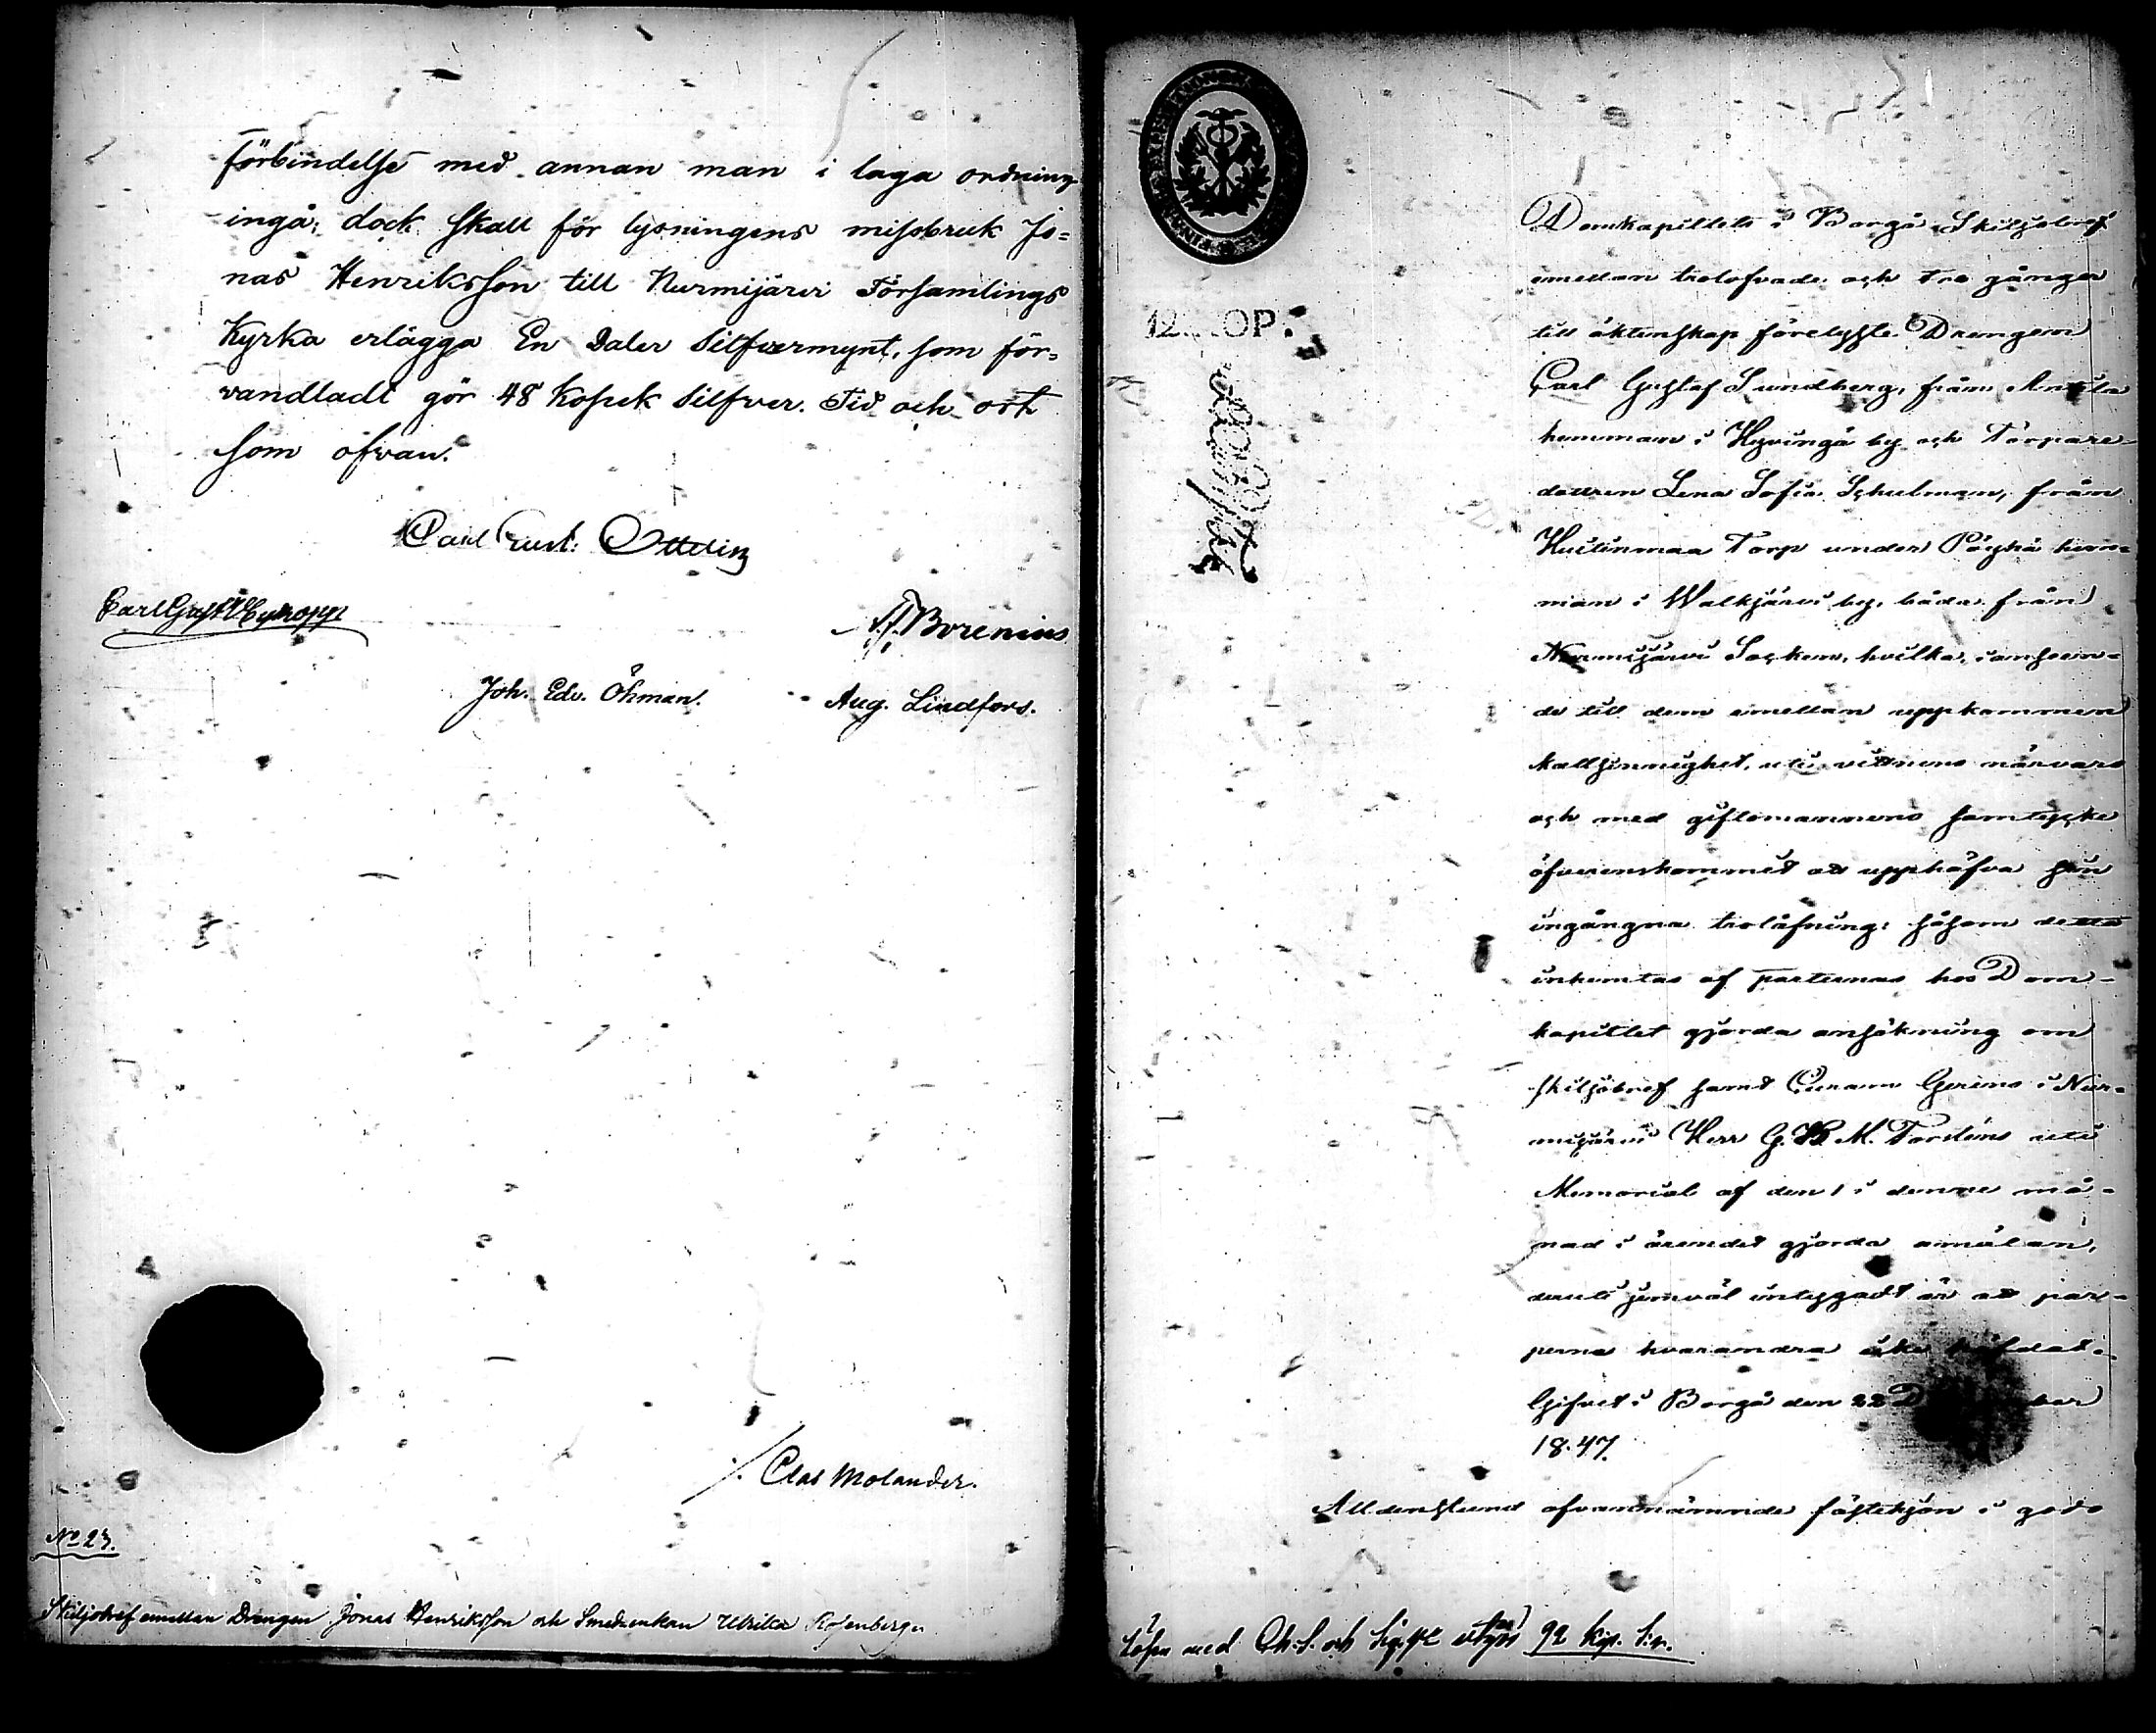 förbindelse med annan man i laga ordning
ingå; dock skall för lysningens missbruk Jo=
nas Henriksson till Nurmijärvi Församlings
Kyrka erlägga En Daler Silfvermynt, som för=
vandladt gör 48 Kopek Silfver. Tid och ort
som ofvan.
Carl Gust. Ottelin
Carl Gust.
Borenius
Joh. Edv. Öhman.
Aug. Lindfors.
Clas Molander.
No 23.
Skiljobref emellan Drängen Jonas Henriksson och Smedsenkan Ulrika Rosenberg
12 KOP.
Domkapitlets i Borgå Skiljobref
emellan trolofvade och tre gånger
till äktenskap förelyste Drengen
Carl Gustaf Lundberg, från Anttila
hemman i Hyvingä by och Torpare-
dottren Lena Sofia Schulman, från
Huitinmaa Torp under Pöyhä hem=
man i Walkjärvi by, båda från
Nurmijärvi Socken, hvilka, i anseen-
de till dem emellan uppkommen
kallsinnighet, uti vittnens närvaro
och med giftomannens samtycke
öfverenskommit att upphäfva sin
ingångna trolåfning; såsom detta
inhemtas af parternas hos Dom-
kapitlet gjorda ansökning om
skiljobref samt Curam Gerens i Nur-
mijärvi Herr G. H. M. Forsténs uti
Memorial af den 1 i denne må-
nad i ärendet gjorda anmälan,
deruti jemväl intygadt är att par-
terna hvarandra icke häfdat.
Gifvet i Borgå den 22 December
1847.
Alldenstund ofvannämnde fästehjon i godo
Lösen med Ch. S. och 92 kop. S:r.